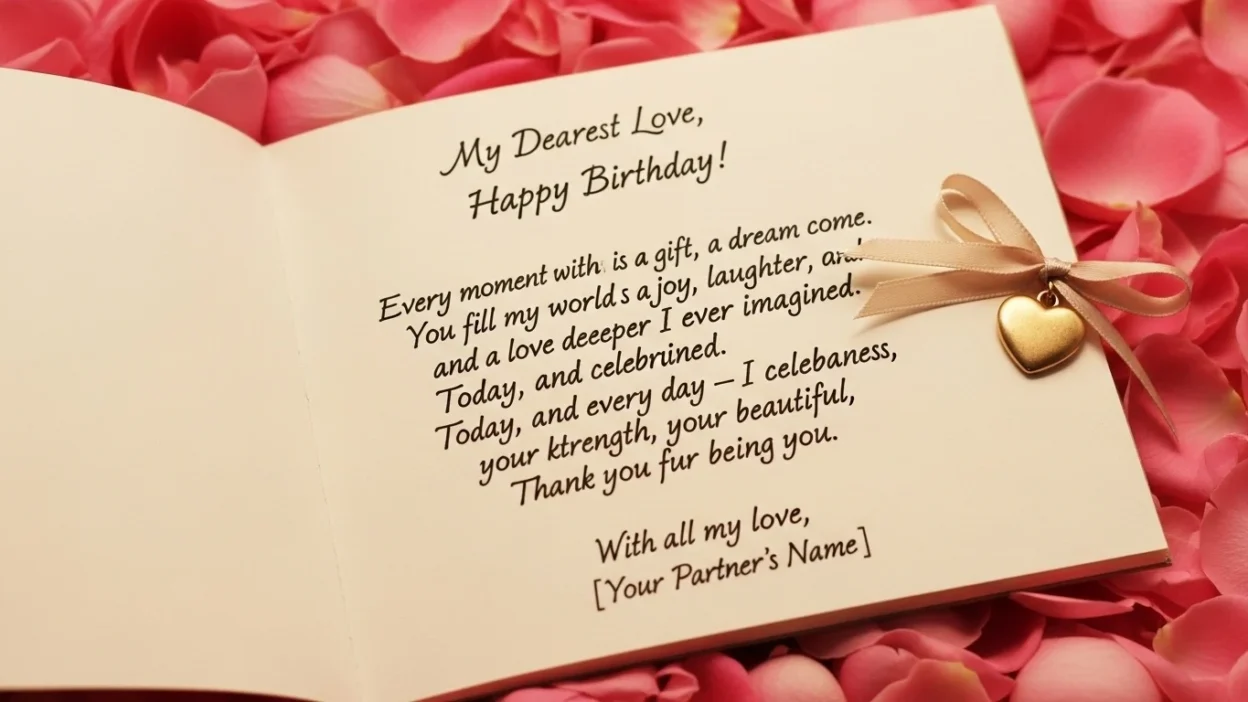 My Dearest Love,
Happy Birthday!
Every moment with is a gift, a dream come.
You fill my world s a joy, laughter, and
and a love deeeper I ever imagined.
Today, and celebrüined.
Today, and every day – I celebaness,
your ktrength, your beautiful,
Thank you fur being you.
With all my love,
[Your Partner's Name]